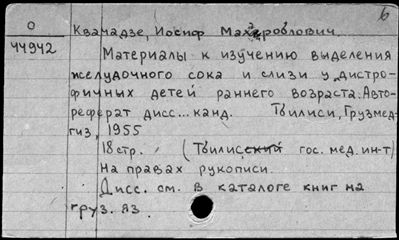 б
О
44942
Квачадзе, Иосиф Махароблович
Материалы к изучению выделения
желудочного сока и слизи у дистро-
фичных детей раннего возраста: Авто-
реферат дисс... канд. Тбилиси, Грузмед-
гиз, 1955
18 стр. (Тбилисский гос. мед. ин-т)
На правах рукописи.
Дисс. см. в каталоге книг на
груз. яз.